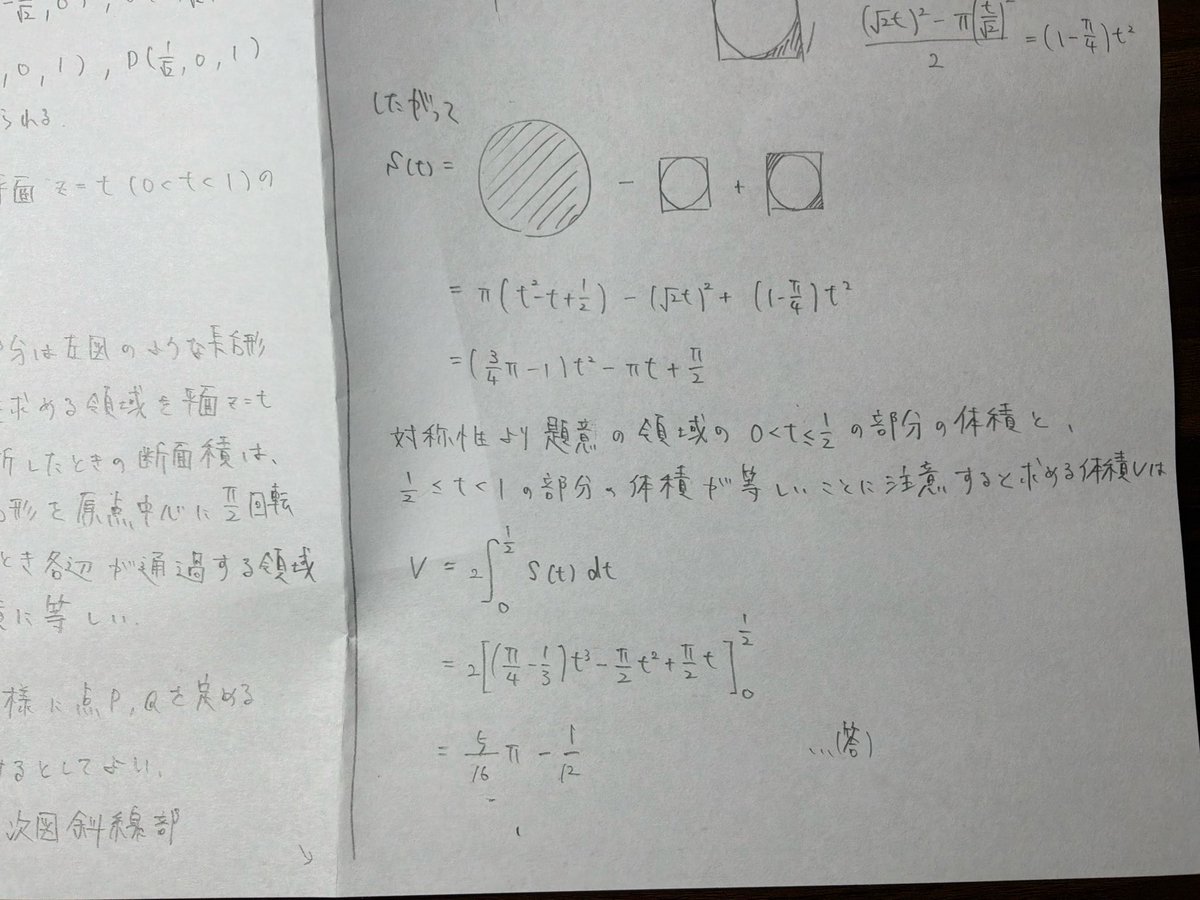 √2, 0)
, 0, 1), D(1/√2, 0, 1)
られる.
平面 z=t (0<t<1)の
分は左図のような長方形
求める領域を平面z=t
断したときの断面積は、
形を原点中心にπ/2回転
とき各辺が通過する領域
に等しい.
様に点P, Qを定める
するとしてよい.
次図斜線部
((√2t)² - π(t/√2)²)/2 = (1-π/4)t²
したがって
S(t) = - +
= π(t²-t+1/2) - (√2t)² + (1-π/4)t²
= (3/4π-1)t² - πt + π/2
対称性より題意の領域の 0<t≤1/2 の部分の体積と、
1/2≤t<1の部分の体積が等しいことに注意すると求める体積Vは
V = 2∫₀^{1/2} S(t) dt
= 2[(π/4-1/3)t³ - π/2t² + π/2t]₀^{1/2}
= 5/16π - 1/12 …(答)